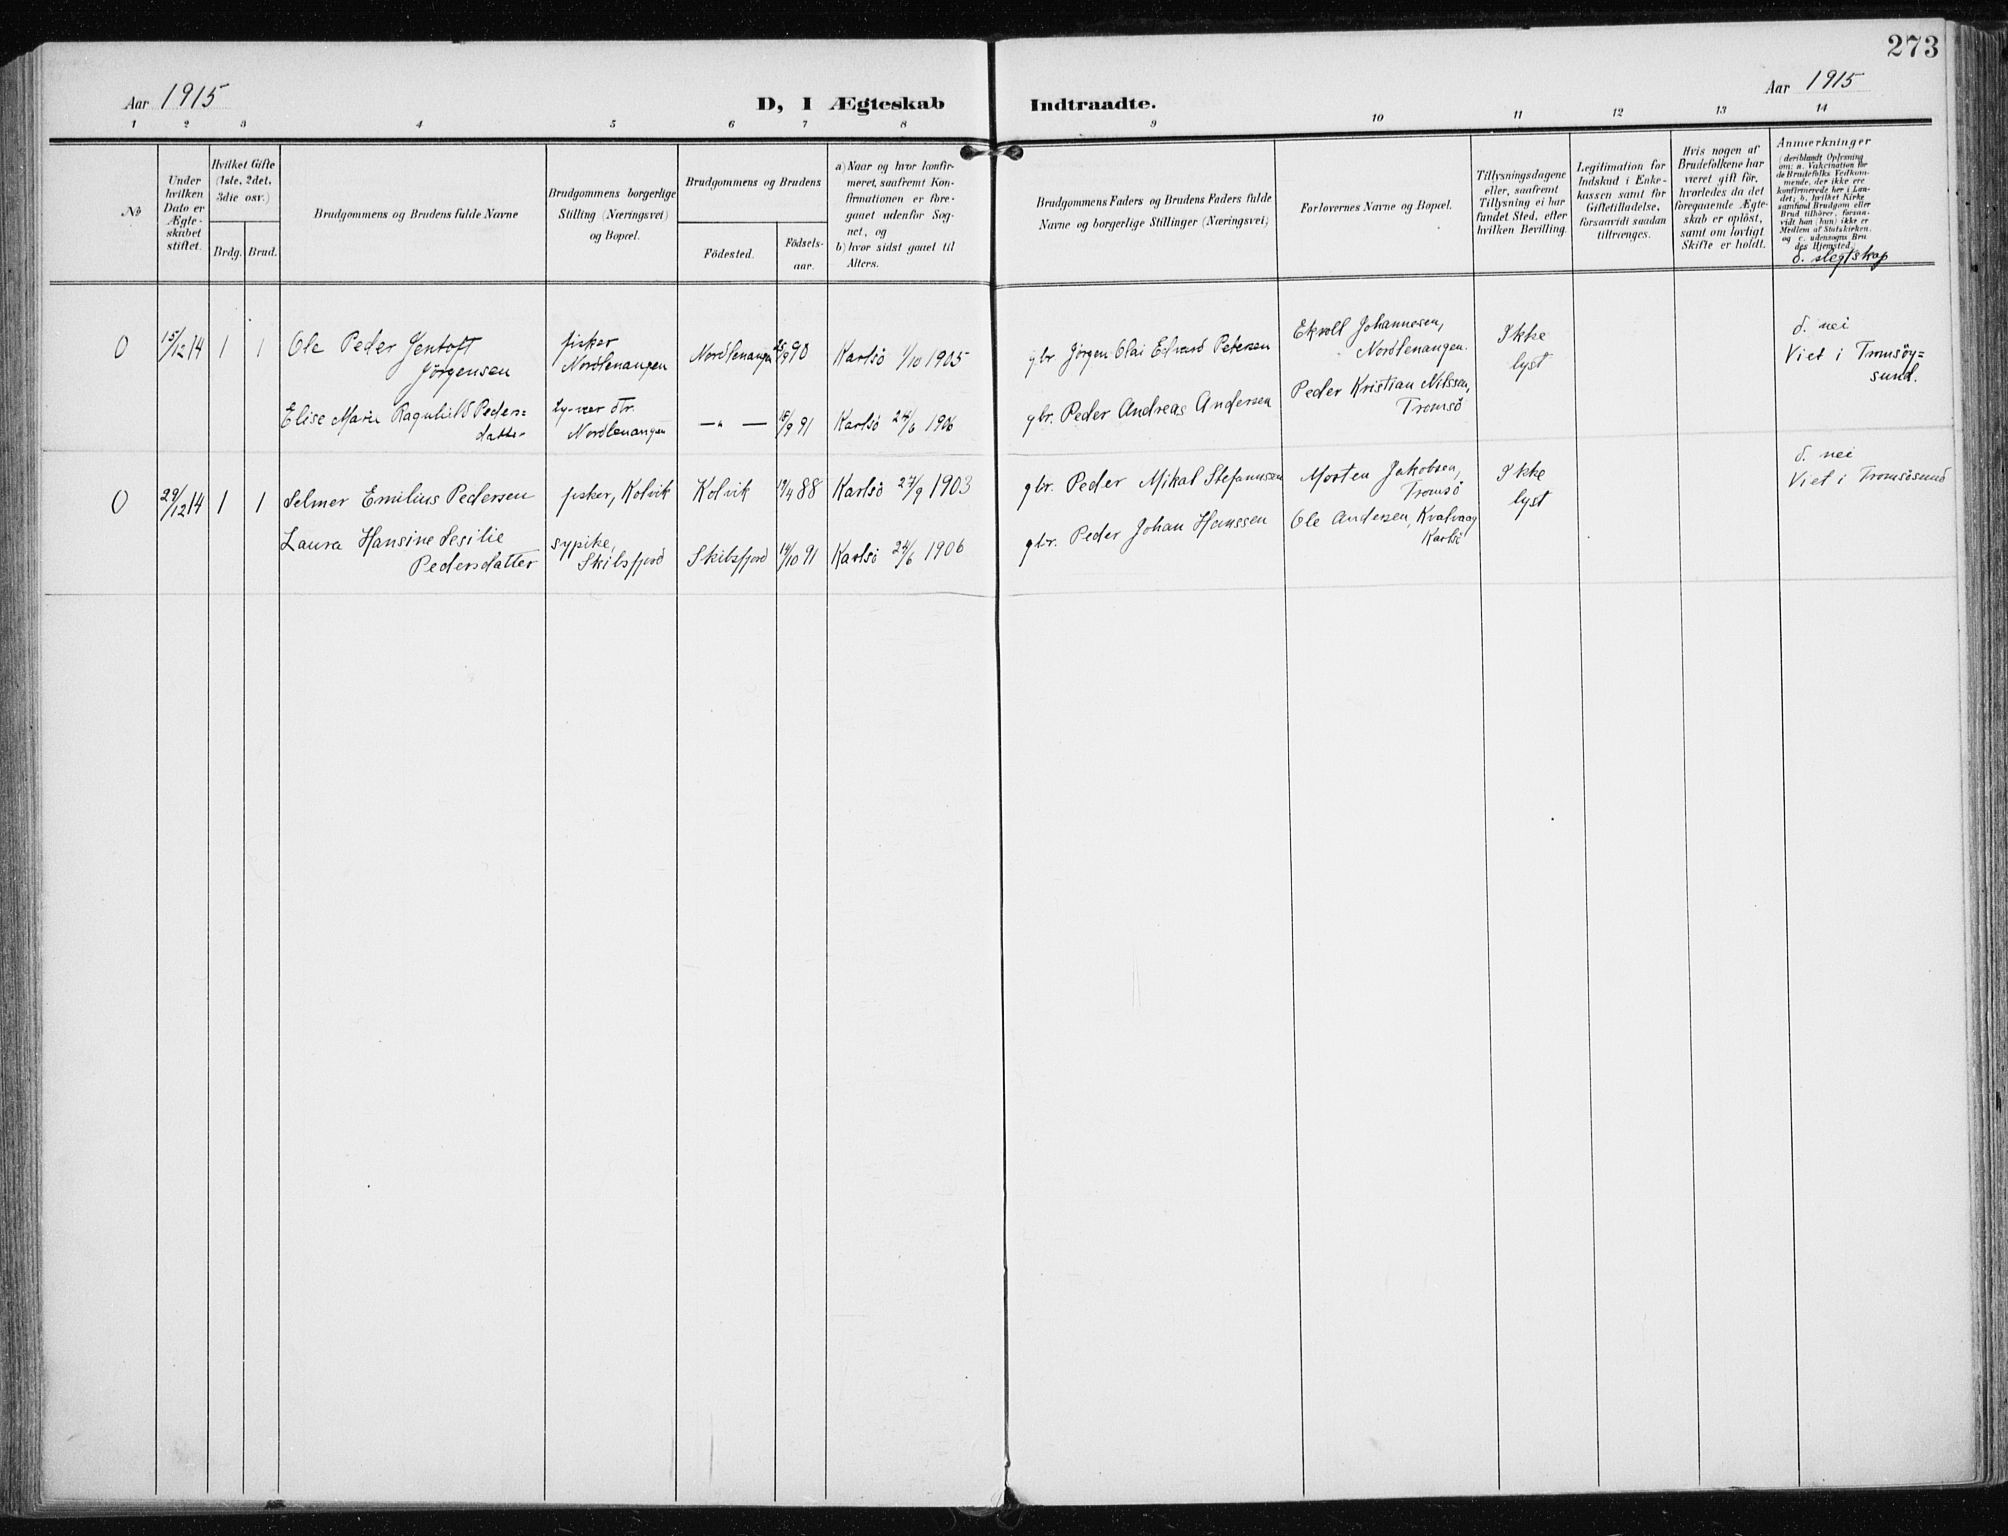 273
Aar 1915
D, I Ægteskab
Indtraadte.
Aar 1915
1 2 3 4 5 6 7 8 9 10 11 12 13 14
No
Under
hvilken
Dato er
Ægte-
skabet
stiftet.
Hvilket Gifte
(1ste, 2det,
3die osv.)
Brdg. Brud.
Brudgommens og Brudens fulde Navne
Brudgommens borgerlige
Stilling (Næringsvei)
og Bopæl.
Brudgommens og Brudens
Födested.
Födsels-
aar.
a) Naar og hvor konfir-
meret, saafremt Kon-
firmationen er fore-
gaaet udenfor Sog-
net, og
b) hvor sidst gaaet til
Alters.
Brudgommens Faders og Brudens Faders fulde
Navne og borgerlige Stillinger (Næringsvei)
Forlovernes Navne og Bopæl.
Tillysningsdagene
eller, saafremt
Tillysning ei har
fundet Sted, efter
hvilken Bevilling.
Legitimation for
Indskud i Enke-
kassen samt for
Giftetilladelse,
forsaavidt saadan
tiltrænges.
Hvis nogen af
Brudefolkene har
været gift för,
hvorledes da det
foregaaende Ægte-
skab er oplöst,
samt om lovligt
Skifte er holdt.
Anmærkninger
(deriblandt Oplysning
om: a. Vakcination for
de Brudefolks Vedkom-
mende, der ikke ere
konfirmerede her i Lan-
det; b. hvilket Kirke-
samfund Brudgom eller
Brud tilhörer, forsaa-
vidt han (hun) ikke er
Medlem af Statskirken,
og c. udensogns Bru-
des Hjemsted.)
d. slegtskap
0 15/12 14 1 1 Ole Peder Jentoft
Jörgensen
fisker
Nordlenangen
Nordlenangen 25/9 90 Karlsö 1/10 1905
gbr. Jörgen Olai Edvard Petersen
Ekvoll Johannesen,
Nordlenangen.
Ikke
lyst
d. nei
Viet i Tromsöy=
sund.
Elise Marie Ragnhild Peders=
datter
Nordlenangen
— " — 15/9 91 Karlsö 24/6 1906
gbr. Peder Andreas Andersen
Peder Kristian Nilssen,
Tromsö
0 29/12 14 1 1 Selmer Emilius Pedersen
fisker, Kolvik Kolvik 19/4 88 Karlsö 27/9 1903
gbr. Peder Mikal Stefanussen
Morten Jakobsen,
Tromsö
Ikke
lyst
d. nei
Viet i Tromsösund
Laura Hansine Sesilie
Pedersdatter
sypike,
Skibsfjord
Skibsfjord 14/10 91 Karlsö 24/6 1906
gbr. Peder Johan Hanssen
Ole Andersen, Kvalvaag
Karlsö